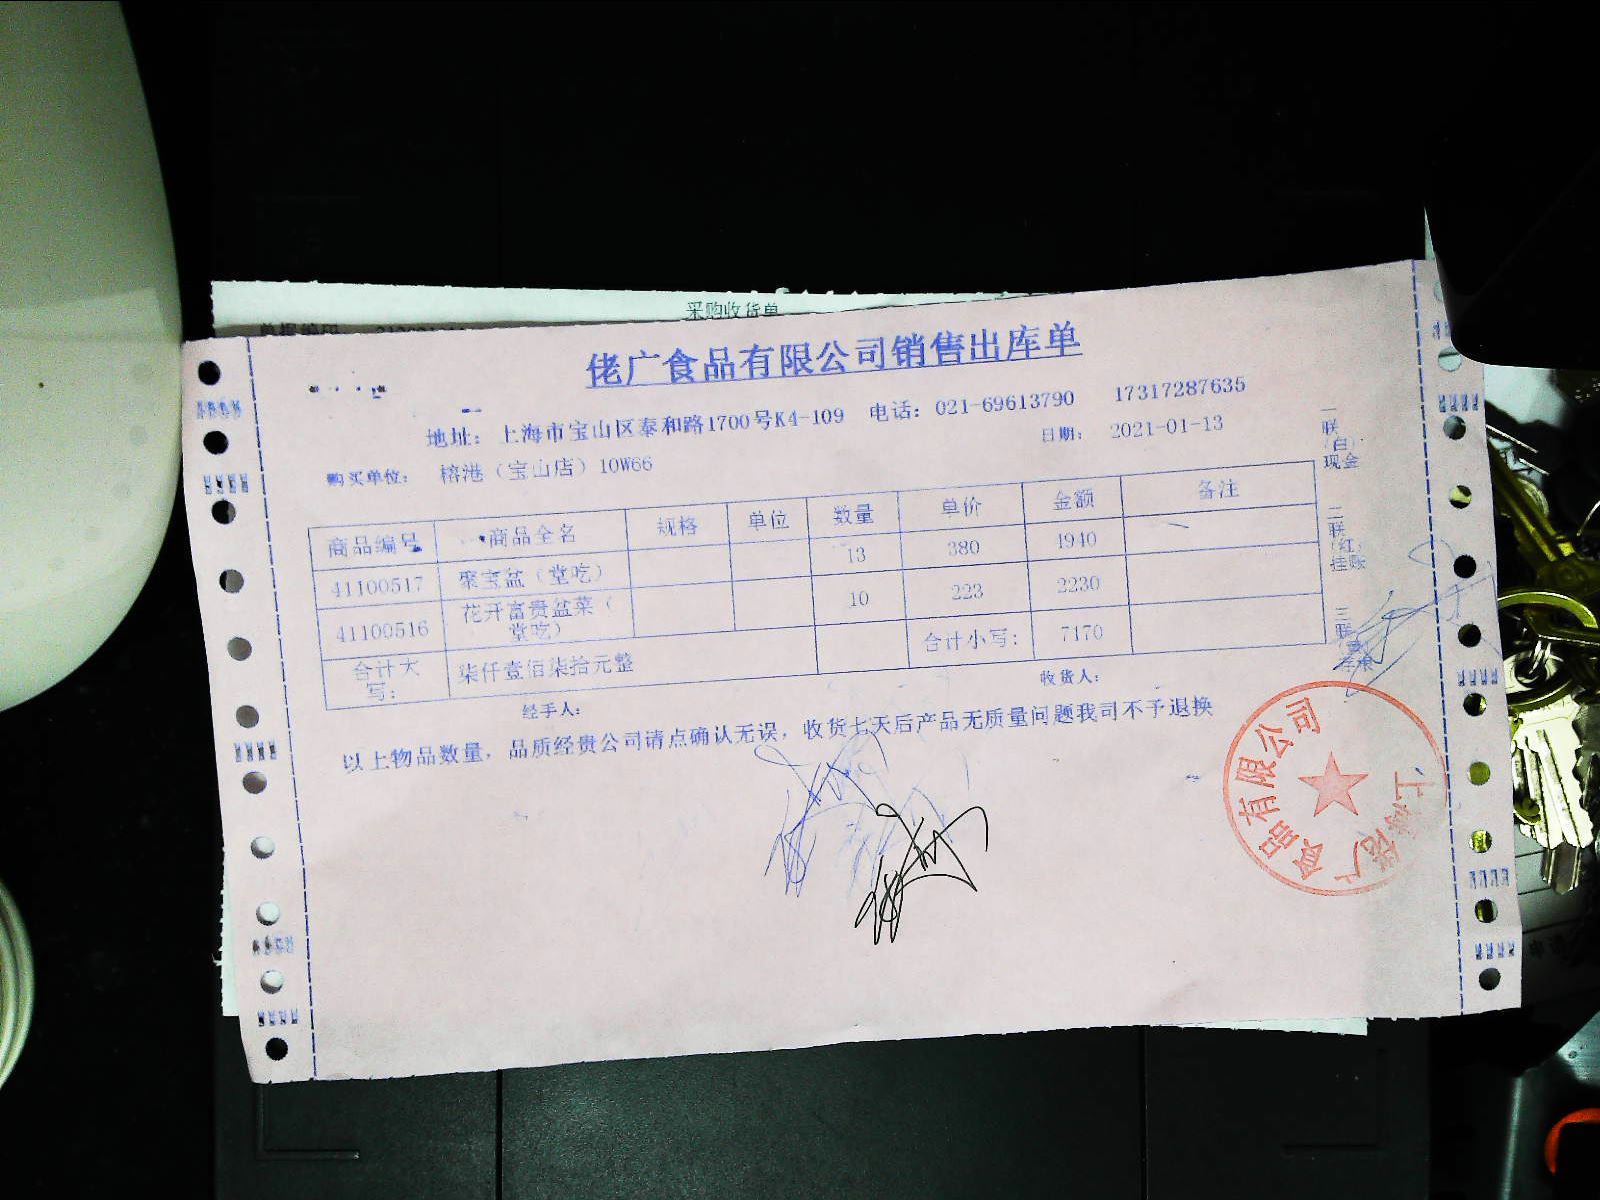 采购收货单
佬广食品有限公司销售出库单
地址: 上海市宝山区泰和路1700号K4-109 电话: 021-69613790 17317287635
购买单位: 榕港（宝山店）10W66 日期: 2021-01-13
商品编号 商品全名 规格 单位 数量 单价 金额 备注
41100517 聚宝盆（堂吃） 13 380 4940
41100516 花开富贵盆菜（堂吃） 10 223 2230
合计大写: 柒仟壹佰柒拾元整 合计小写: 7170
经手人: 收货人:
以上物品数量, 品质经贵公司请点确认无误, 收货七天后产品无质量问题我司不予退换
一联（白）现金
二联（红）挂账
三联
上海佬广食品有限公司